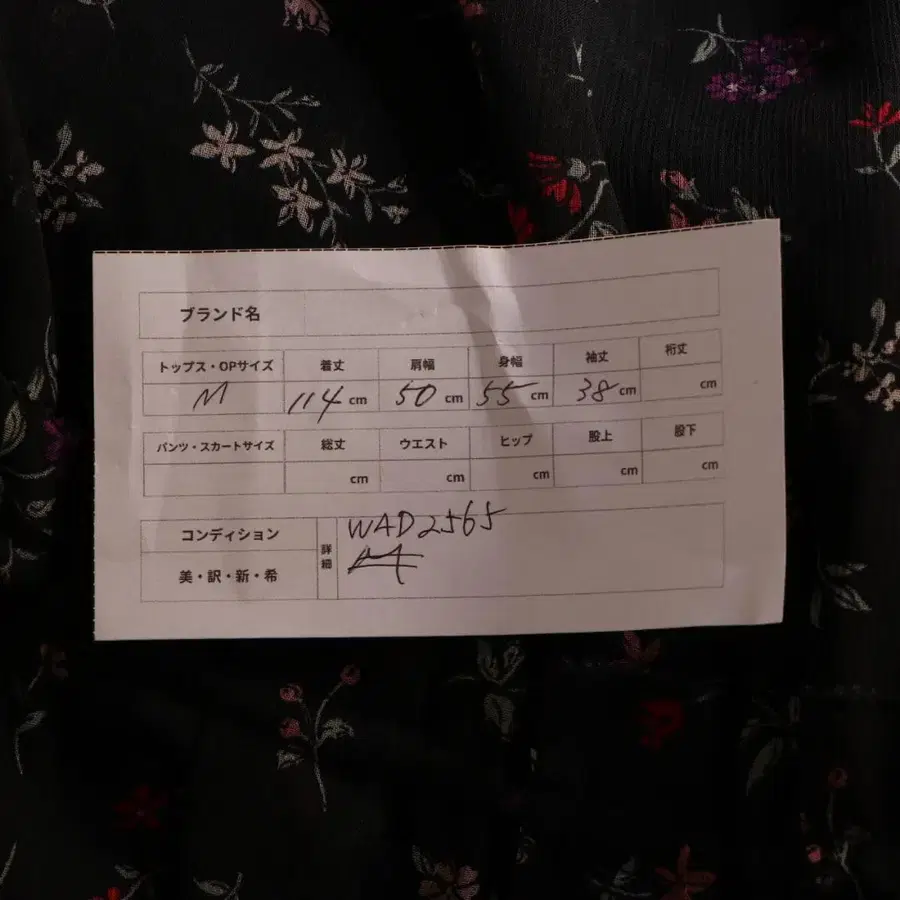 ブランド名
トップス・OPサイズ 着丈 肩幅 身幅 袖丈 裄丈
M 114 cm 50 cm 55 cm 38 cm cm
パンツ・スカートサイズ 総丈 ウエスト ヒップ 股上 股下
cm cm cm cm cm
コンディション 詳細 WAD2565
美・訳・新・希